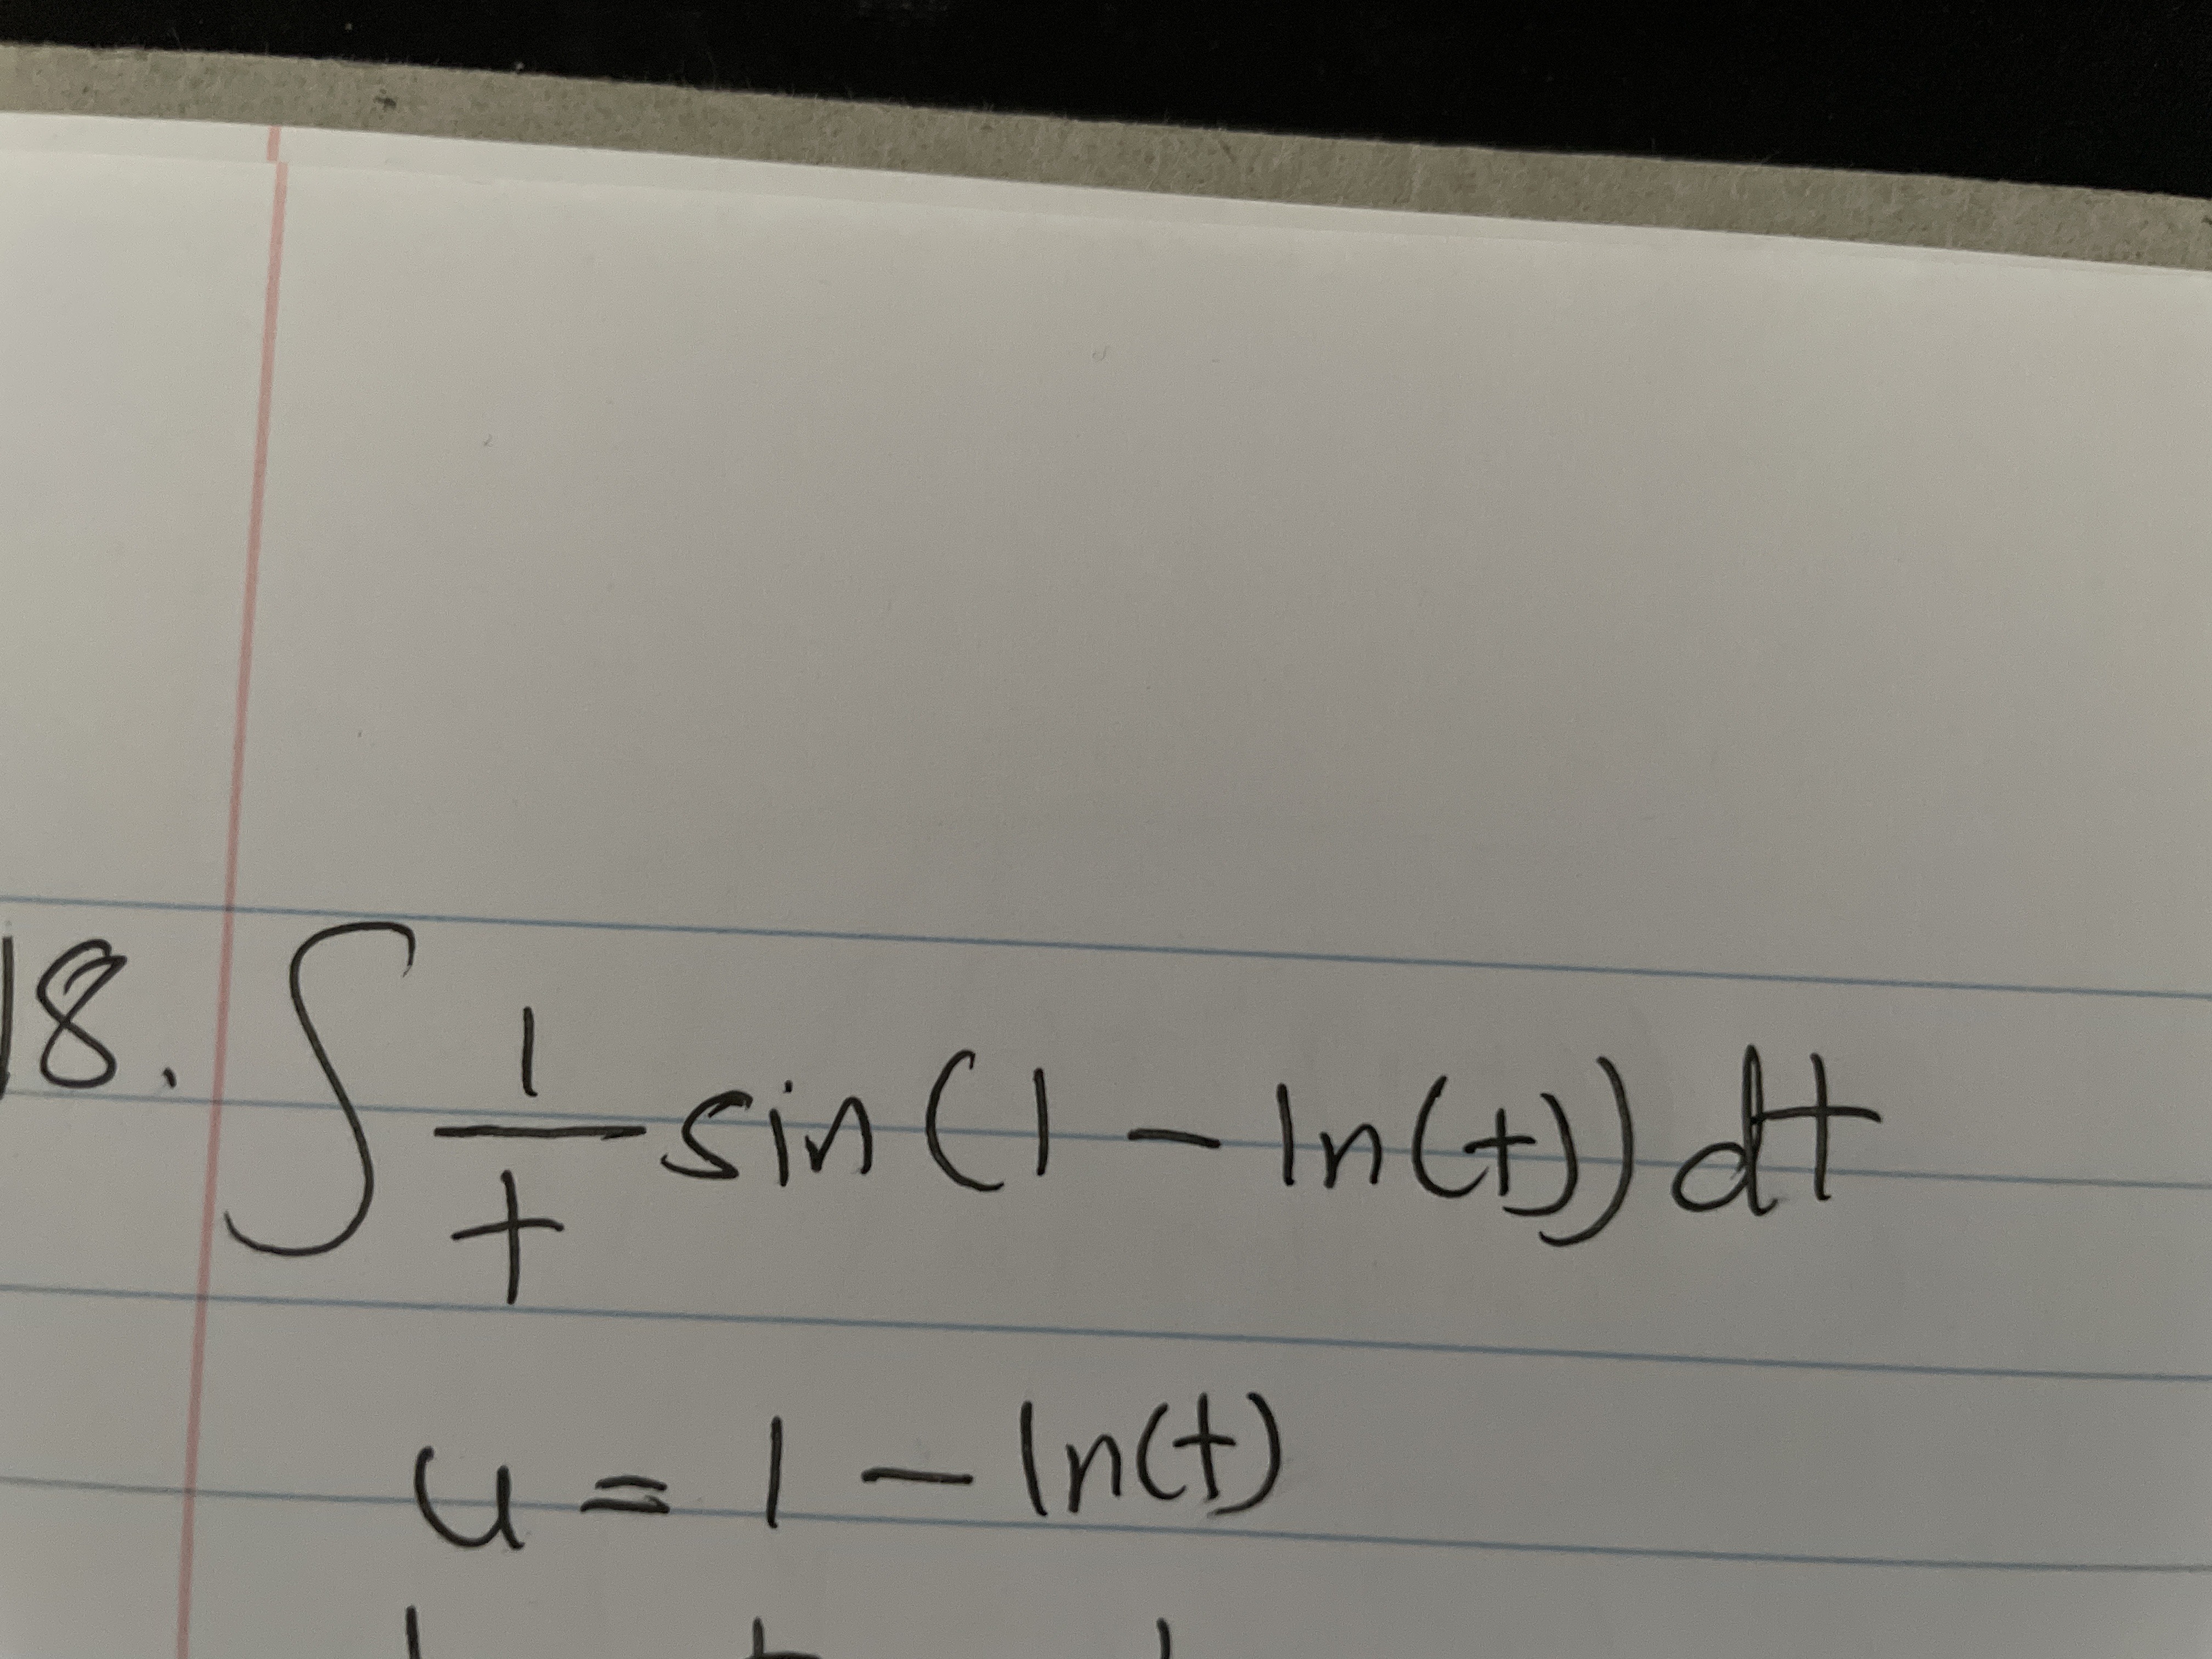 18. ∫ 1/t sin(1 - ln(t)) dt
u = 1 - ln(t)